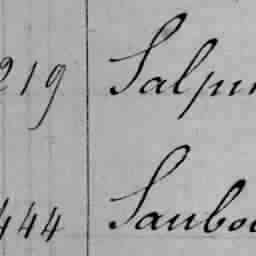 219 Salpin
444 Saubou